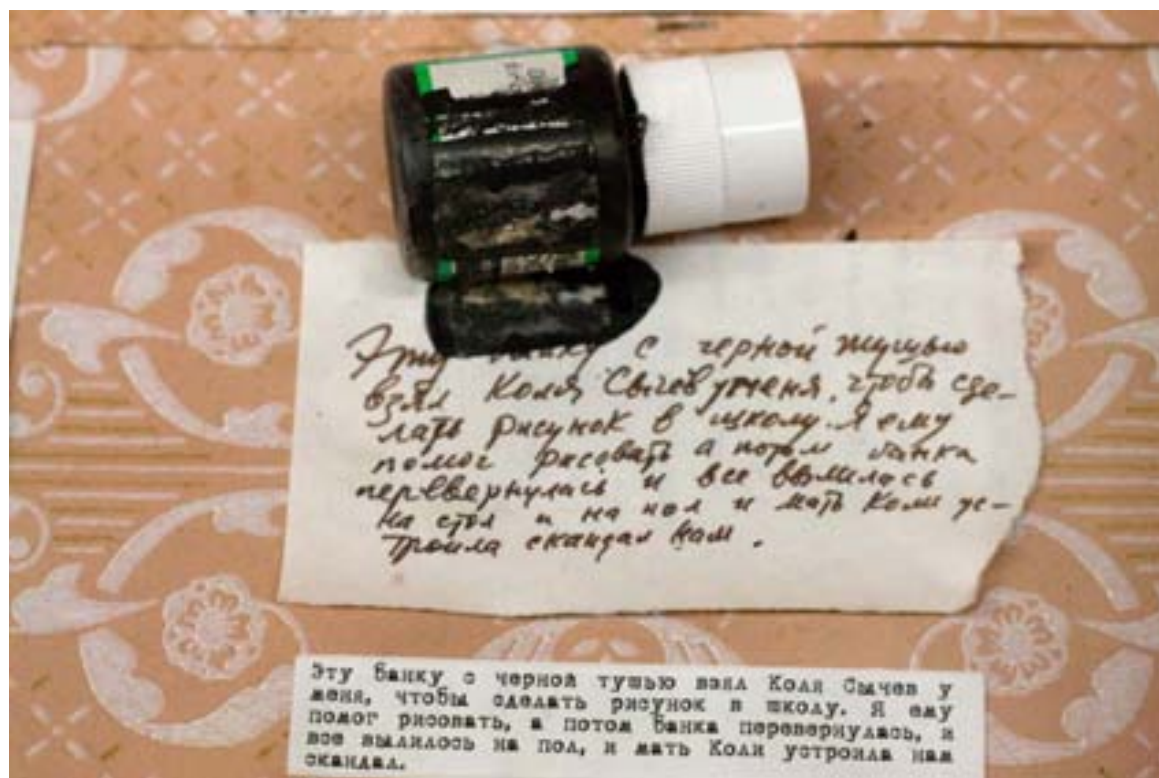 Эту банку с черной тушью
взял Коля Сычев у меня, чтобы сде-
лать рисунок в школу. Я ему
помог рисовать а потом банка
перевернулась и все вылилось
на стол и на пол и мать Коли ус-
троила скандал нам.
Эту банку с черной тушью взял Коля Сычев у
меня, чтобы сделать рисунок в школу. Я ему
помог рисовать, а потом банка перевернулась, и
все вылилось на пол, и мать Коли устроила нам
скандал.